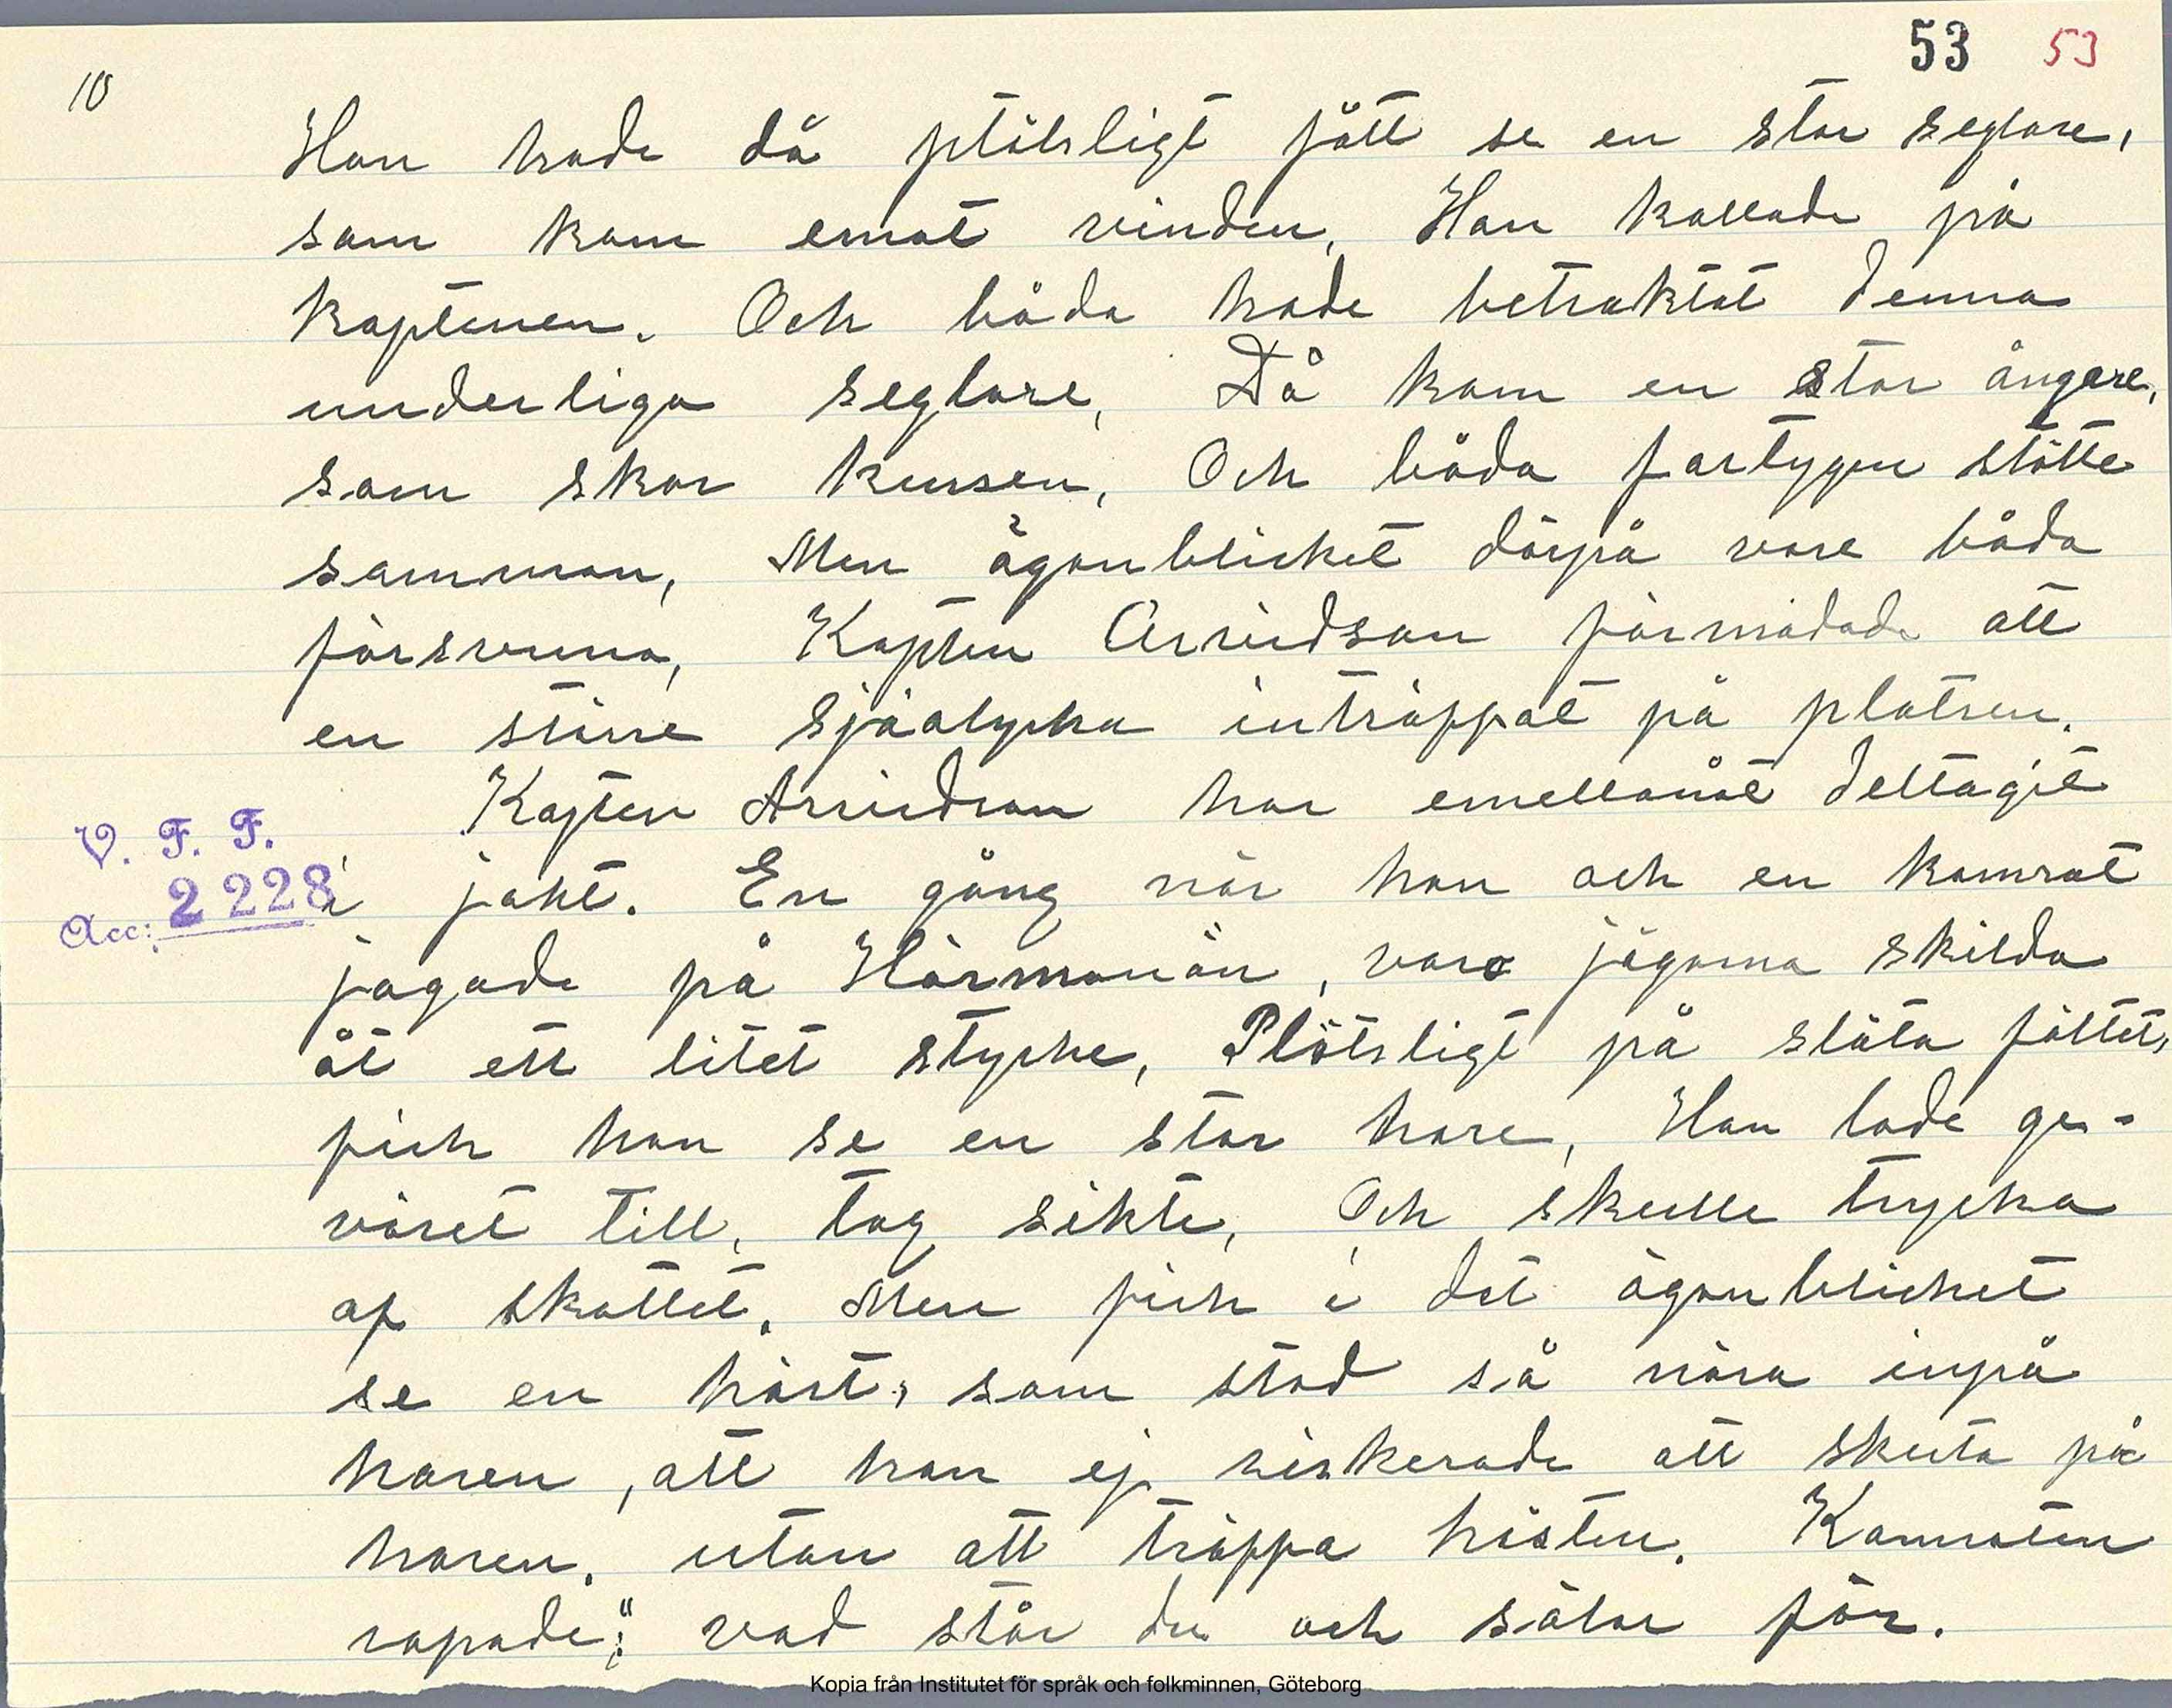 53 53
10
Han hade då plötsligt fått se en stor seglare,
som kom emot vinden, Han kallade på
kaptenen. Och båda hade betraktat denna
underliga seglare, Då kom en stor ångare,
som skar kursen, Och båda fartygen stötte
samman, Men ögonblicket därpå vore båda
försvunna, Kapten Arvidson förmodade att
en större sjöolycka inträffat på platsen.
Kapten Arvidson har emellanåt deltagit
V. F. F.
i jakt. En gång när han och en kamrat
Acc: 2228
jagade på Härmanön, voro jägarna skilda
åt ett litet stycke, Plötsligt på släta fältet,
fick han se en stor hare, Han lade ge-
väret till, tog sikte, Och skulle trycka
af skottet. Men fick i det ögonblicket
se en häst, som stod så nära inpå
haren, att han ej riskerade att skuta på
haren. utan att träffa hästen. Kamraten
ropade:" vad står du och sölar för.
Kopia från Institutet för språk och folkminnen, Göteborg